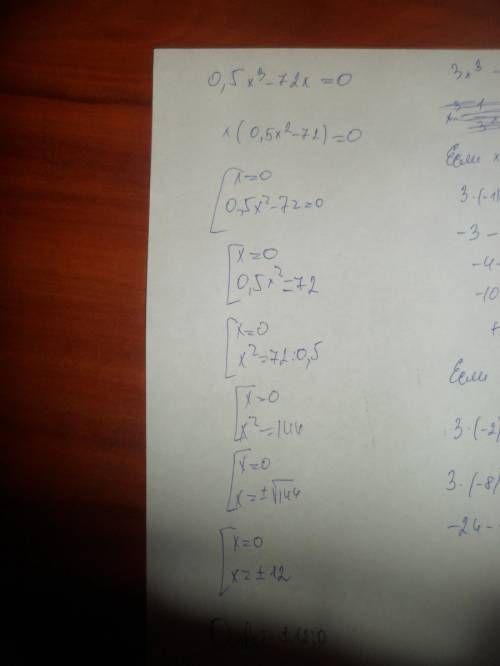 0,5x³-72x=0
x(0,5x²-72)=0
x=0
0,5x²-72=0
x=0
0,5x²=72
x=0
x²=72:0,5
x=0
x²=144
x=0
x=±√144
x=0
x=±12
±12;0
3x³-
Если x
3·(-1)
-3-
-4-
-10
Если
3·(-2)
3·(-8)
-24-